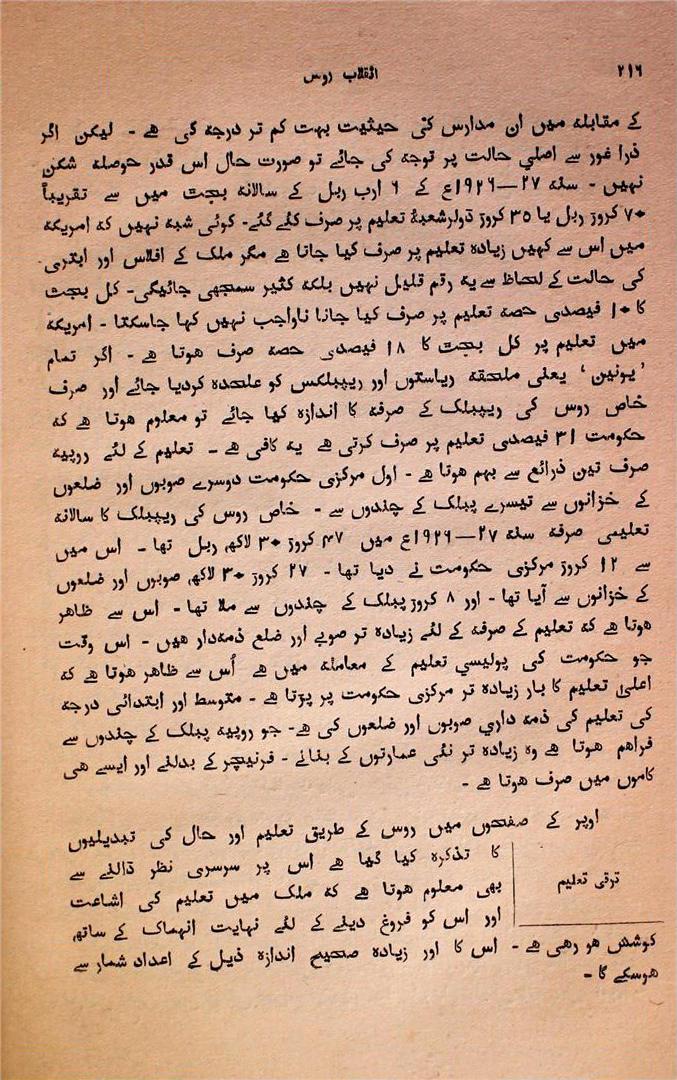 ۲۱۶ انقلاب روس
کے مقابلہ میں ان مدارس کی حیثیت بہت کم تر درجہ کی ہے - لیکن اگر
ذرا غور سے اصلی حالت پر توجہ کی جائے تو صورت حال اس قدر حوصلہ شکن
نہیں - سنہ ۲۷—۱۹۲۶ع کے ۶ ارب ربل کے سالانہ بجٹ میں سے تقریباً
۷۰ کروڑ ربل یا ۳۵ کروڑ ڈولر شعبۂ تعلیم پر صرف کئے گئے - کوئی شبہ نہیں کہ امریکہ
میں اس سے کہیں زیادہ تعلیم پر صرف کیا جاتا ہے مگر ملک کے افلاس اور ابتری
کی حالت کے لحاظ سے یہ رقم قلیل نہیں بلکہ کثیر سمجھی جائیگی - کل بجٹ
کا ۱۰ فیصدی حصہ تعلیم پر صرف کیا جانا ناواجب نہیں کہا جاسکتا - امریکہ
میں تعلیم پر کل بجٹ کا ۱۸ فیصدی حصہ صرف ہوتا ہے - اگر تمام
’یونین‘ یعنی ملحقہ ریاستوں اور ریپبلکس کو علحدہ کردیا جائے اور صرف
خاص روس کی ریپبلک کے صرفہ کا اندازہ کیا جائے تو معلوم ہوتا ہے کہ
حکومت ۳۱ فیصدی تعلیم پر صرف کرتی ہے یہ کافی ہے - تعلیم کے لئے روپیہ
صرف تین ذرائع سے بہم ہوتا ہے - اول مرکزی حکومت دوسرے صوبوں اور ضلعوں
کے خزانوں سے تیسرے پبلک کے چندوں سے - خاص روس کی ریپبلک کا سالانہ
تعلیمی صرفہ سنہ ۲۷—۱۹۲۶ع میں ۴۷ کروڑ ۳۰ لاکھ ربل تھا - اس میں
سے ۱۲ کروڑ مرکزی حکومت نے دیا تھا - ۲۷ کروڑ ۳۰ لاکھ صوبوں اور ضلعوں
کے خزانوں سے آیا تھا - اور ۸ کروڑ پبلک کے چندوں سے ملا تھا - اس سے ظاہر
ہوتا ہے کہ تعلیم کے صرفہ کے لئے زیادہ تر صوبے اور ضلع ذمہدار ہیں - اس وقت
جو حکومت کی پولیسی تعلیم کے معاملہ میں ہے اُس سے ظاہر ہوتا ہے کہ
اعلیٰ تعلیم کا بار زیادہ تر مرکزی حکومت پر پڑتا ہے - متوسط اور ابتدائی درجہ
کی تعلیم کی ذمہ داری صوبوں اور ضلعوں کی ہے - جو روپیہ پبلک کے چندوں سے
فراہم ہوتا ہے وہ زیادہ تر نئی عمارتوں کے بنانے - فرنیچر کے بدلنے اور ایسے ہی
کاموں میں صرف ہوتا ہے -
اوپر کے صفحوں میں روس کے طریق تعلیم اور حال کی تبدیلیوں
کا تذکرہ کیا گیا ہے اس پر سرسری نظر ڈالنے سے
ترقی تعلیم
بھی معلوم ہوتا ہے کہ ملک میں تعلیم کی اشاعت
اور اس کو فروغ دینے کے لئے نہایت انہماک کے ساتھ
کوشش ہو رہی ہے - اس کا اور زیادہ صحیح اندازہ ذیل کے اعداد شمار سے
ہوسکے گا -